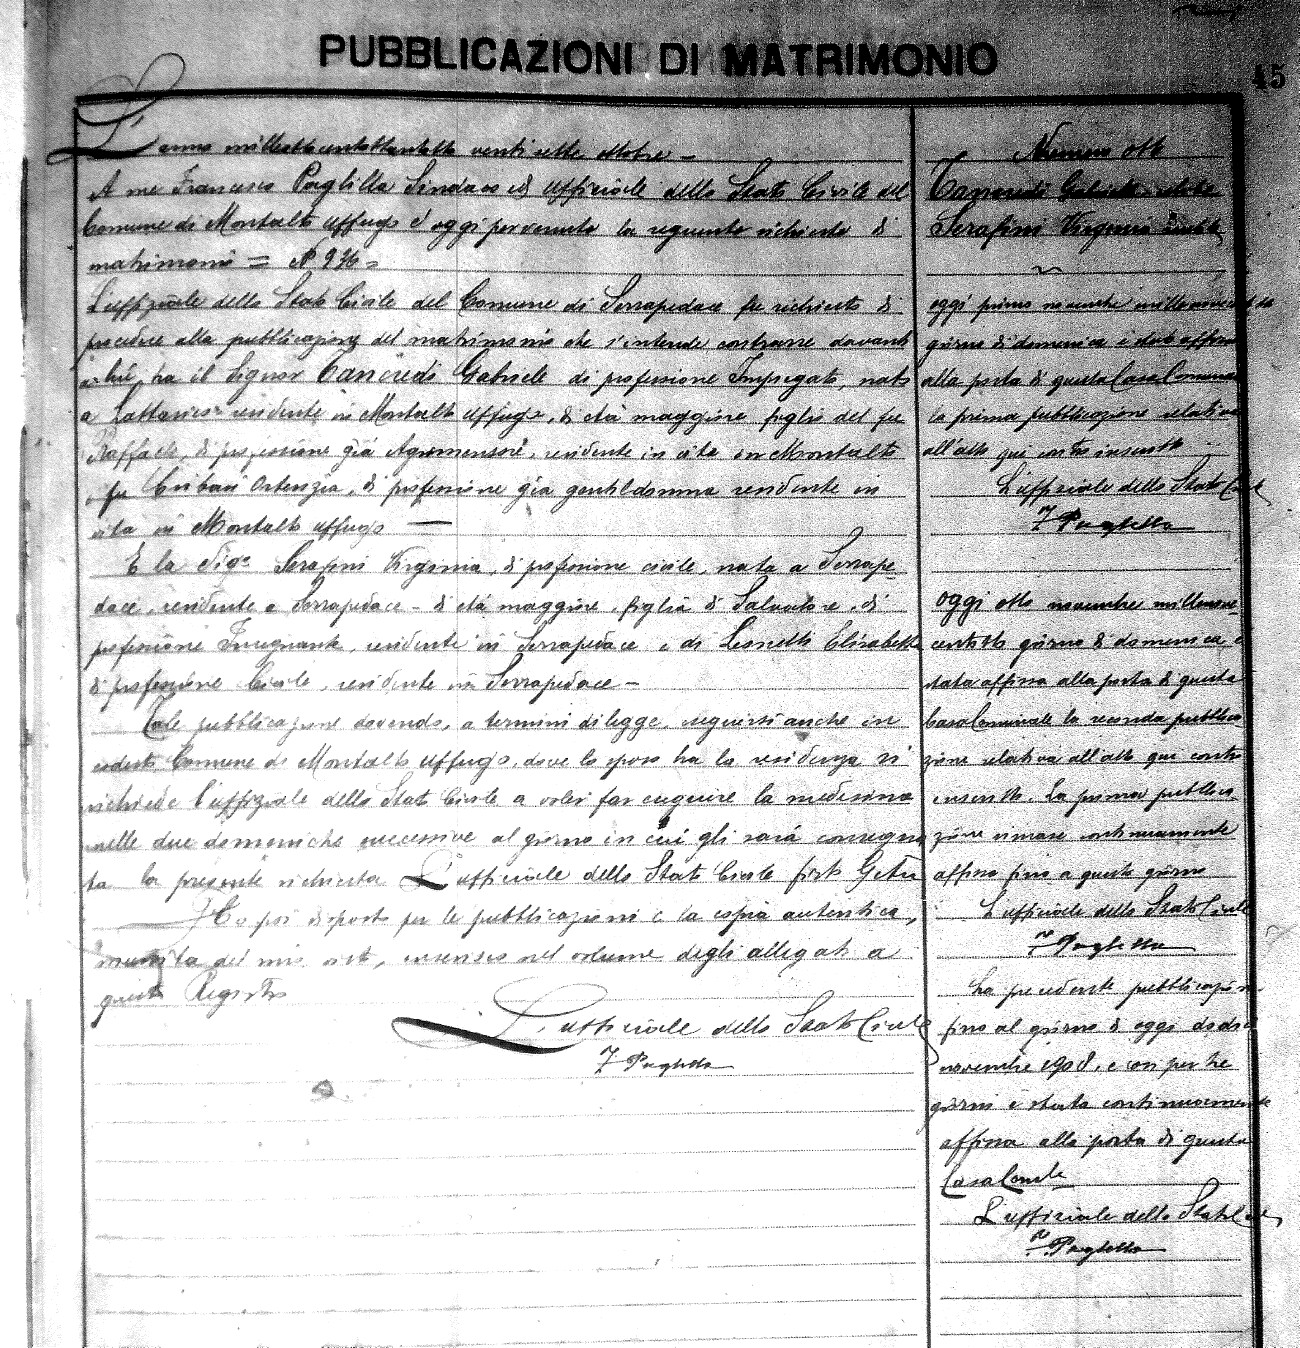 PUBBLICAZIONI DI MATRIMONIO
45
L'anno venti sette ottobre
A me Francesco Paglilla Sindaco ed Uffiziale dello Stato Civile del
Comune di Montalto Uffugo è oggi pervenuta la seguente richiesta di
matrimonio = N 936 =
L'uffiziale dello Stato Civile del Comune di Serrapedace fu richiesto di
procedere alla pubblicazione del matrimonio che s'intende contrarre davanti
a lui, tra il Signor Tancredi Gabriele di professione Impiegato, nato
a Lattarico residente in Montalto Uffugo, di età maggiore figlio del fu
Raffaele, di professione già Agrimensore, residente in vita in Montalto
fu Ortenzia, di professione già gentildonna residente in
vita in Montalto Uffugo —
E la Sig.a Serafini Virginia, di professione civile, nata a Serrape
dace, residente a Serrapedace - di età maggiore, figlia di Salvatore, di
professione Insegnante, residente in Serrapedace e di Leonetti Elisabetta
di professione Civile, residente in Serrapedace -
Tale pubblicazione dovendo, a termini di legge, seguirsi anche in
codesto Comune di Montalto Uffugo, dove lo sposo ha la residenza si
richiede l'uffiziale dello Stato Civile a voler far eseguire la medesima
nelle due domeniche successive al giorno in cui gli sarà consegna
ta la presente richiesta L'uffiziale dello Stato Civile
Ho poi disposto per le pubblicazioni e la copia autentica,
munita del mio visto, inserisco nel volume degli allegati a
questo Registro
L'uffiziale dello Stato Civile
F Paglilla
Numero otto
Tancredi Gabriele celibe
Serafini Virginia nubile
oggi primo novembre
giorno di domenica è stata affissa
alla porta di questa Casa Comunale
la prima pubblicazione relativa
all'atto qui contro inserito
L'uffiziale dello Stato Civile
F Paglilla
Oggi otto novembre millenove
centotto giorno di domenica è
stata affissa alla porta di questa
Casa Comunale la seconda pubblica
zione relativa all'atto qui contro
inserito. La prima pubblica
zione rimase continuamente
affissa fino a questo giorno
L'uffiziale dello Stato Civile
F Paglilla
La precedente pubblicazione
fino al giorno di oggi dodici
novembre 1908, e con per tre
giorni è stata continuamente
affissa alla porta di questa
Casa Com.le
L'uffiziale dello Stato Civile
F Paglilla